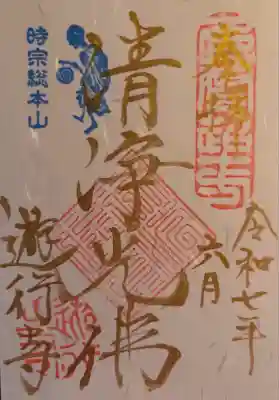 令和七年
六月
清浄光佛
時宗総本山
遊行寺